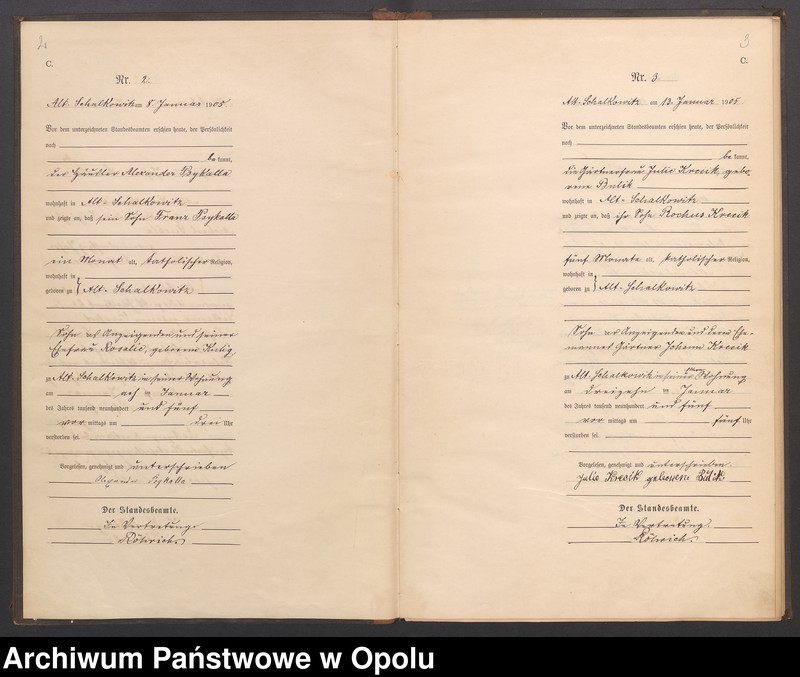 2.
C.
Nr. 2.
Alt-Schalkowitz am 8 Januar 1905.
Vor dem unterzeichneten Standesbeamten erschien heute, der Persönlichkeit
nach
be kannt,
der Häusler Alexander Psykalla
wohnhaft in Alt-Schalkowitz
und zeigte an, daß sein Sohn Franz Psykalla
ein Monat alt, katholischer Religion,
wohnhaft in
geboren zu Alt-Schalkowitz
Sohn des Anzeigenden und seiner
Ehefrau Rosalie, geborene
zu Alt-Schalkowitz in seiner Wohnung
am acht ten Januar
des Jahres tausend neunhundert und fünf
vor mittags um drei Uhr
verstorben sei.
Vorgelesen, genehmigt und unterschrieben
Alexander Psykalla
Der Standesbeamte.
In Vertretung.
Röhrich.
3
C.
Nr. 3.
Alt-Schalkowitz am 13. Januar 1905.
Vor dem unterzeichneten Standesbeamten erschien heute, der Persönlichkeit
nach
be kannt,
die Gärtnerfrau Julie Krecik, gebo-
rene Bulik
wohnhaft in Alt-Schalkowitz
und zeigte an, daß ihr Sohn Rochus Krecik
fünf Monate alt, katholischer Religion,
wohnhaft in
geboren zu Alt-Schalkowitz
Sohn der Anzeigenden und deren Ehe-
mannes Gärtner Johann Krecik
zu Alt-Schalkowitz in seiner Wohnung
am dreizehn ten Januar
des Jahres tausend neunhundert und fünf
vor mittags um fünf Uhr
verstorben sei.
Vorgelesen, genehmigt und unterschrieben
Julie Krecik geborene Bulik
Der Standesbeamte.
In Vertretung.
Röhrich.
Archiwum Państwowe w Opolu